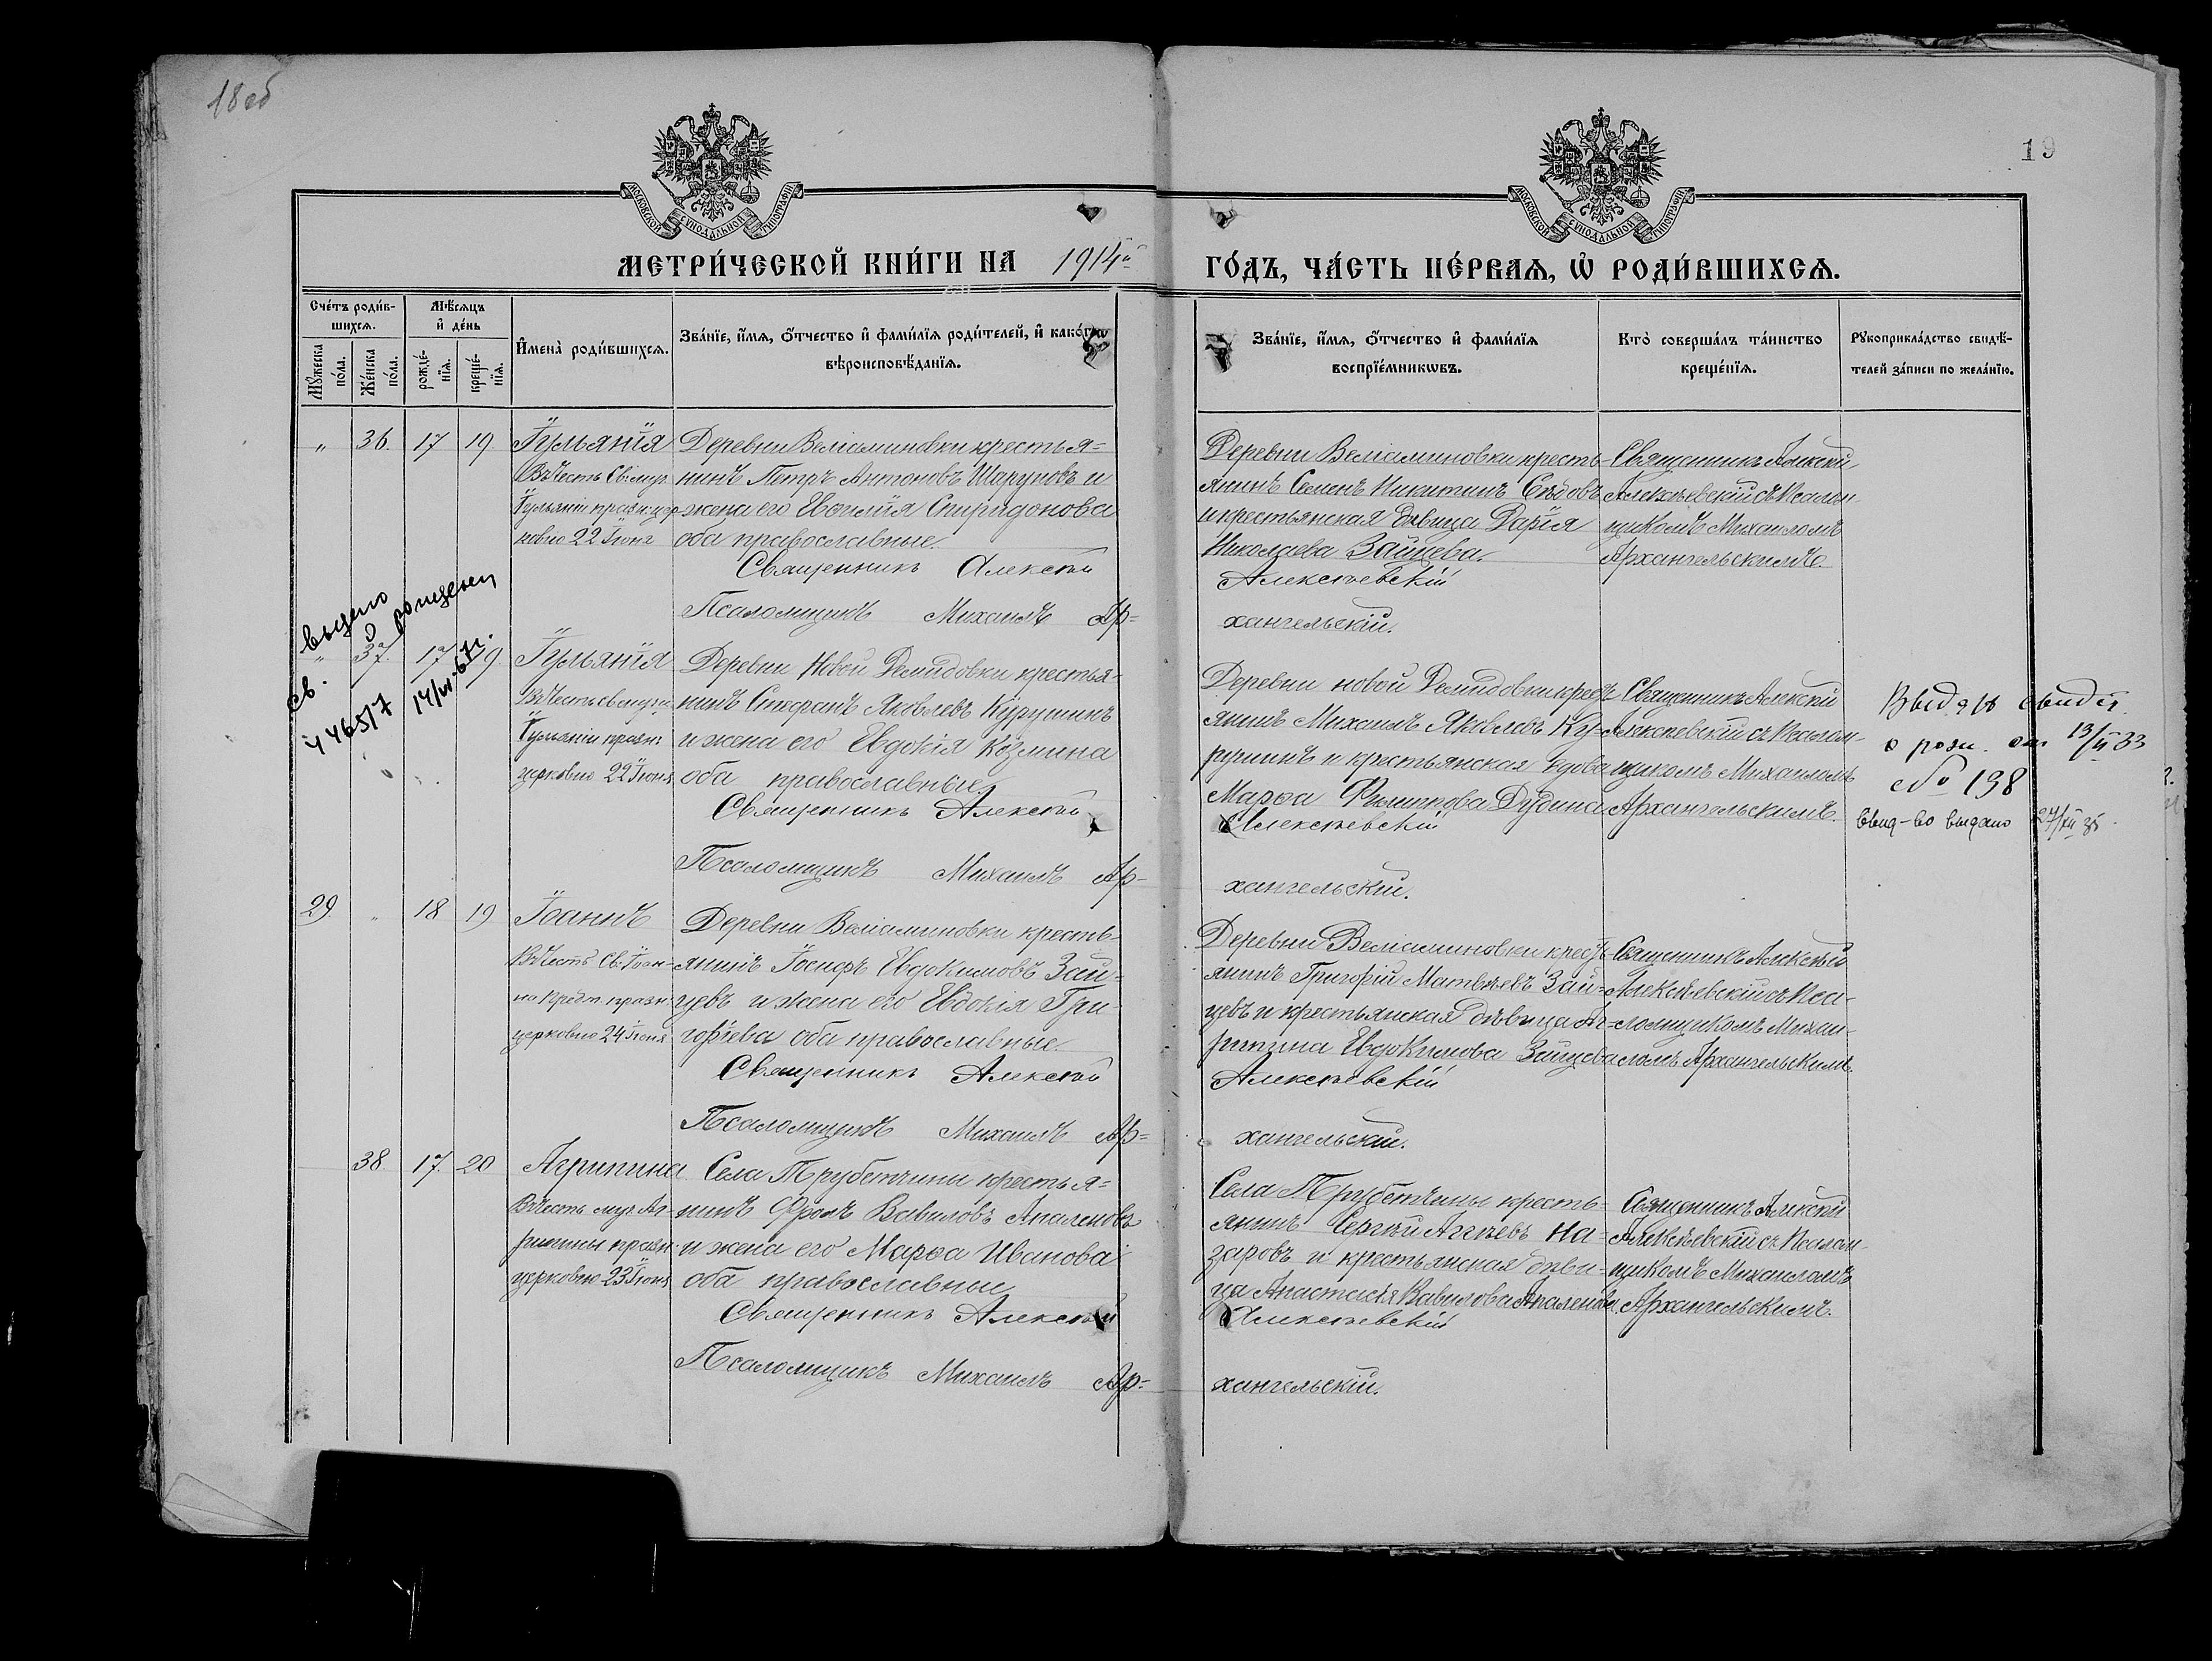 18 об
19
МОСКОВСКОЙ СѴНОДАЛЬНОЙ ТИПОГРАФІИ
МОСКОВСКОЙ СѴНОДАЛЬНОЙ ТИПОГРАФІИ
МЕТРИ́ЧЕСКОЙ КНИ́ГИ НА 1914й ГО́ДЪ, ЧА́СТЬ ПЕ́РВАЯ, Ѡ҆ РОДИ́ВШИХСЯ.
Сче́тъ роди́в-
шихся.
Мꙋ́жеска по́ла.
Же́нска по́ла.
Мѣ́сяцъ
и҆ де́нь
рожде́-
нїя.
креще́-
нїя.
И҆мена̀ роди́вшихся.
Зва́нїе, и҆́мя, ѻ҆́тчество и҆ фами́лїя роди́телей, и҆ како́гѡ
вѣроисповѣ́данїя.
Зва́нїе, и҆́мя, ѻ҆́тчество и҆ фами́лїя
воспрїе́мникѡвъ.
Кто̀ соверша́лъ та́инство
креще́нїя.
Рꙋкоприкла́дство свидѣ́-
телей за́писи по жела́нїю.
" 36. 17 19
Іуліанія
Въ честь Св: муч.
Іуліаніи празн. цер-
ковію 22 Іюня
Деревни Веліаминовки крестья=
нинъ Петръ Антоновъ Шаруповъ и
жена его Евфимія Спиридонова
оба православные.
Священникъ Алексѣй
Псаломщикъ Михаилъ Ар=
Деревни Веліаминовки кресть-
янинъ Семенъ Никитинъ Сѣдовъ
и крестьянская дѣвица Дарія
Николаева Зайцева.
Алексѣевскій
хангельскій.
Священникъ Алексѣй
Алексѣевскій съ Псалом-
щикомъ Михаиломъ
Архангельскимъ.
выдано
о рождении
св.
14/VI-67г.
" 37. 17 19
Іуліанія
Въ честь св. муч:
Іуліаніи празн.
церковію 22 Іюня
Деревни Новой Демидовки крестья-
нинъ Стефанъ Яковлевъ Курушинъ
и жена его Евдокія Козмина
оба православные.
Священникъ Алексѣй
Псаломщикъ Михаилъ Ар-
Деревни новой Демидовки крест-
янинъ Михаилъ Яковлевъ Ку-
рушинъ и крестьянская вдова
Марѳа Филиппова Дудина
Алексѣевскій
хангельскій.
Священникъ Алексѣй
Алексѣевскій съ Псалом-
щикомъ Михаиломъ
Архангельскимъ.
Выдано свидет.
о рожд. от 13/II 33
№ 198
Свид-во выдано 24/XII 35
29 " 18 19
Іоаннъ
Въ честь Св: Іоан-
на Предт. празн.
церковію 24 Іюня
Деревни Веліаминовки кресть-
янинъ Іосифъ Евдокимовъ Зай-
цевъ и жена его Евдокія Гри-
горіева оба православные.
Священникъ Алексѣй
Псаломщикъ Михаилъ Ар=
Деревни Веліаминовки крест-
янинъ Григорій Матвѣевъ Зай-
цевъ и крестьянская дѣвица Аг-
рипина Евдокимова Зайцева
Алексѣевскій
хангельскій.
Священникъ Алексѣй
Алексѣевскій съ Пса-
ломщикомъ Михаи-
ломъ Архангельскимъ.
38 17. 20
Агрипина
Въ честь муч. Аг-
рипины празн.
церковію 23 Іюня
Села Трубетчины крестья=
нинъ Фролъ Вавиловъ Апаленовъ
и жена его Марѳа Иванова
оба православные
Священникъ Алексѣй
Псаломщикъ Михаилъ Ар=
Села Трубетчины кресть-
янинъ Сергѣй Агѣевъ На-
заровъ и крестьянская дѣви-
ца Анастасія Вавилова Апаленова
Алексѣевскій
хангельскій.
Священникъ Алексѣй
Алексѣевскій съ Псалом-
щикомъ Михаиломъ
Архангельскимъ.